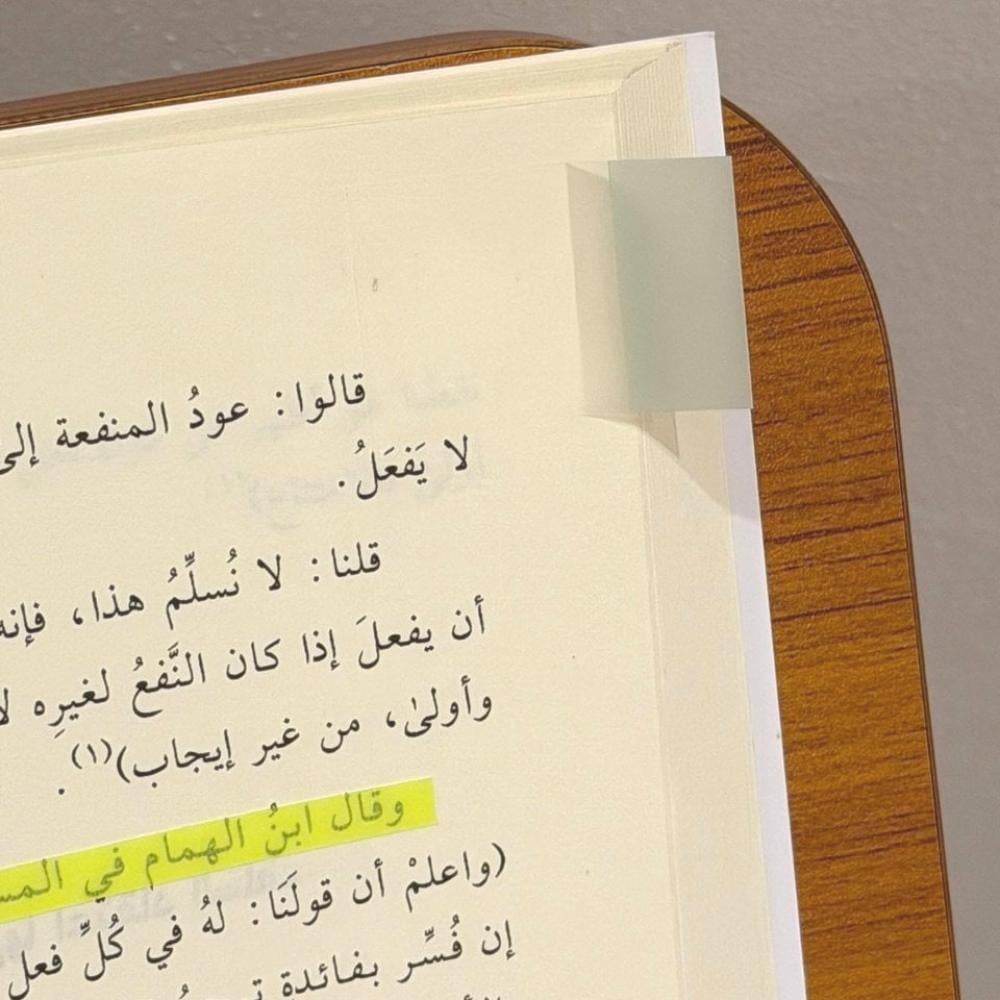 قالوا: عودُ المنفعة إلى
لا يَفعَلُ.
قلنا: لا نُسلِّمُ هذا، فإنه
أن يفعلَ إذا كان النَّفعُ لغيرِه
وأولىٰ، من غير إيجاب)(١).
وقال ابنُ الهمام في
(واعلمْ أن قولَنَا: لهُ في كُلِّ فعل
إن فُسِّر بفائدة